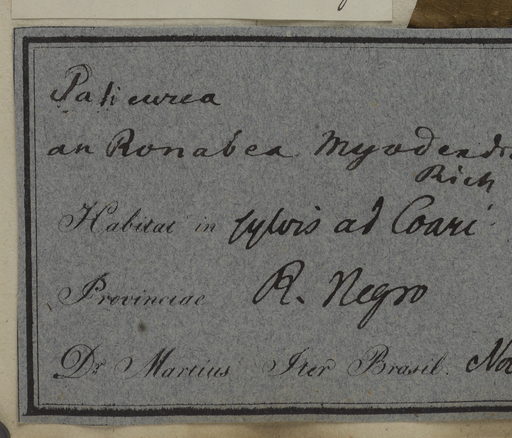 Palicurea
an Ronabea Myodendr
Rich
Habitat in sylvis ad Coari
Provinciae R. Negro
Dr Martius Iter Brasil. Nov